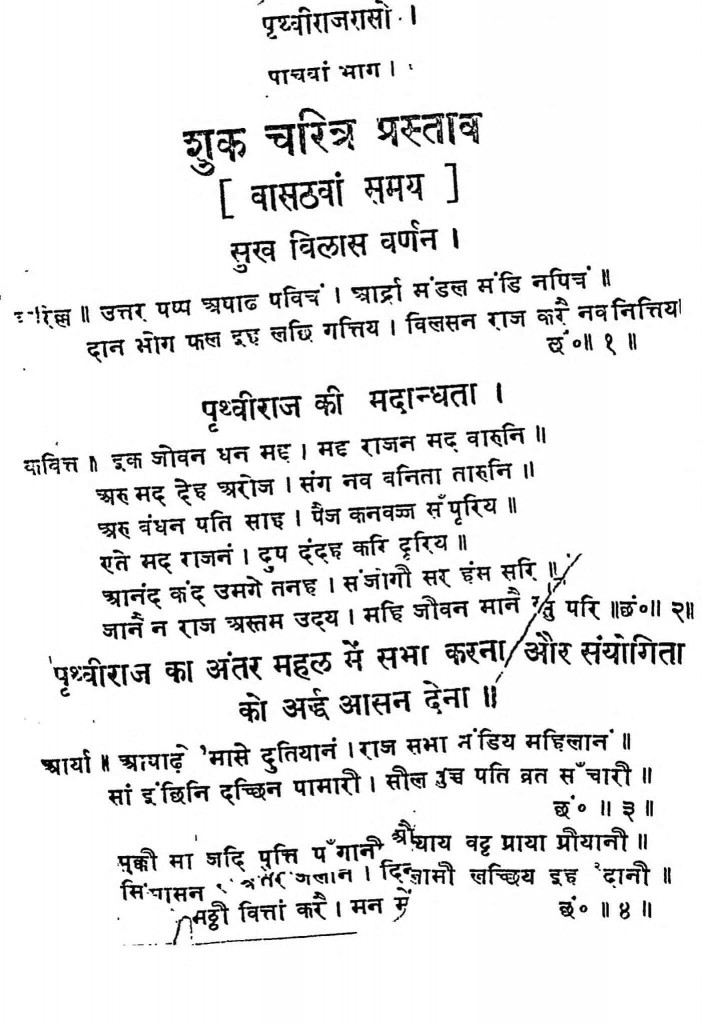 पृथ्वीराजरासो ।
पाचवां भाग ।
शुक चरित्र प्रस्ताव
[ वासठवां समय ]
सुख विलास वर्णन ।
॥ उत्तर पष्प अषाढ पविचं । आर्द्रा मंडल मंडि नपिचं ॥
दान भोग फल इह लछि गत्तिय । विलसन राज करै नव नित्तिय
छं॰॥ १ ॥
पृथ्वीराज की मदान्धता ।
॥ इक जोवन धन मद्द । मद्द राजन मद् वारुनि ॥
अरु मद् देह अरोज । संग नव वनिता तारुनि ॥
अरु वंधन पति साह । पैज कनवज्ज सँपूरिय ॥
एते मद् राजनं । दुष दंदह करि दूरिय ॥
आनंद कंद उमगे तनह । संजोगी सर हंस सरि ॥
जानै न राज अस्तम उदय । महि जौवन मानै परि ॥छं॰॥ २॥
पृथ्वीराज का अंतर महल में सभा करना और संयोगिता
को अर्द्ध आसन देना ॥
आर्या ॥ आषाढ़े मासे दुतियानं । राज सभा मंडिय महिलानं ॥
सां इंछिनि दच्छिन पामारौ । सौल पति व्रत सँचारौ ॥
छं॰ ॥ ३ ॥
मा जदि पुत्ति पँगानौ वट्ट प्राया प्रौयानौ ॥
लच्छिय इह दानौ ॥
वित्तां करै । मन में छं॰ ॥ ४ ॥